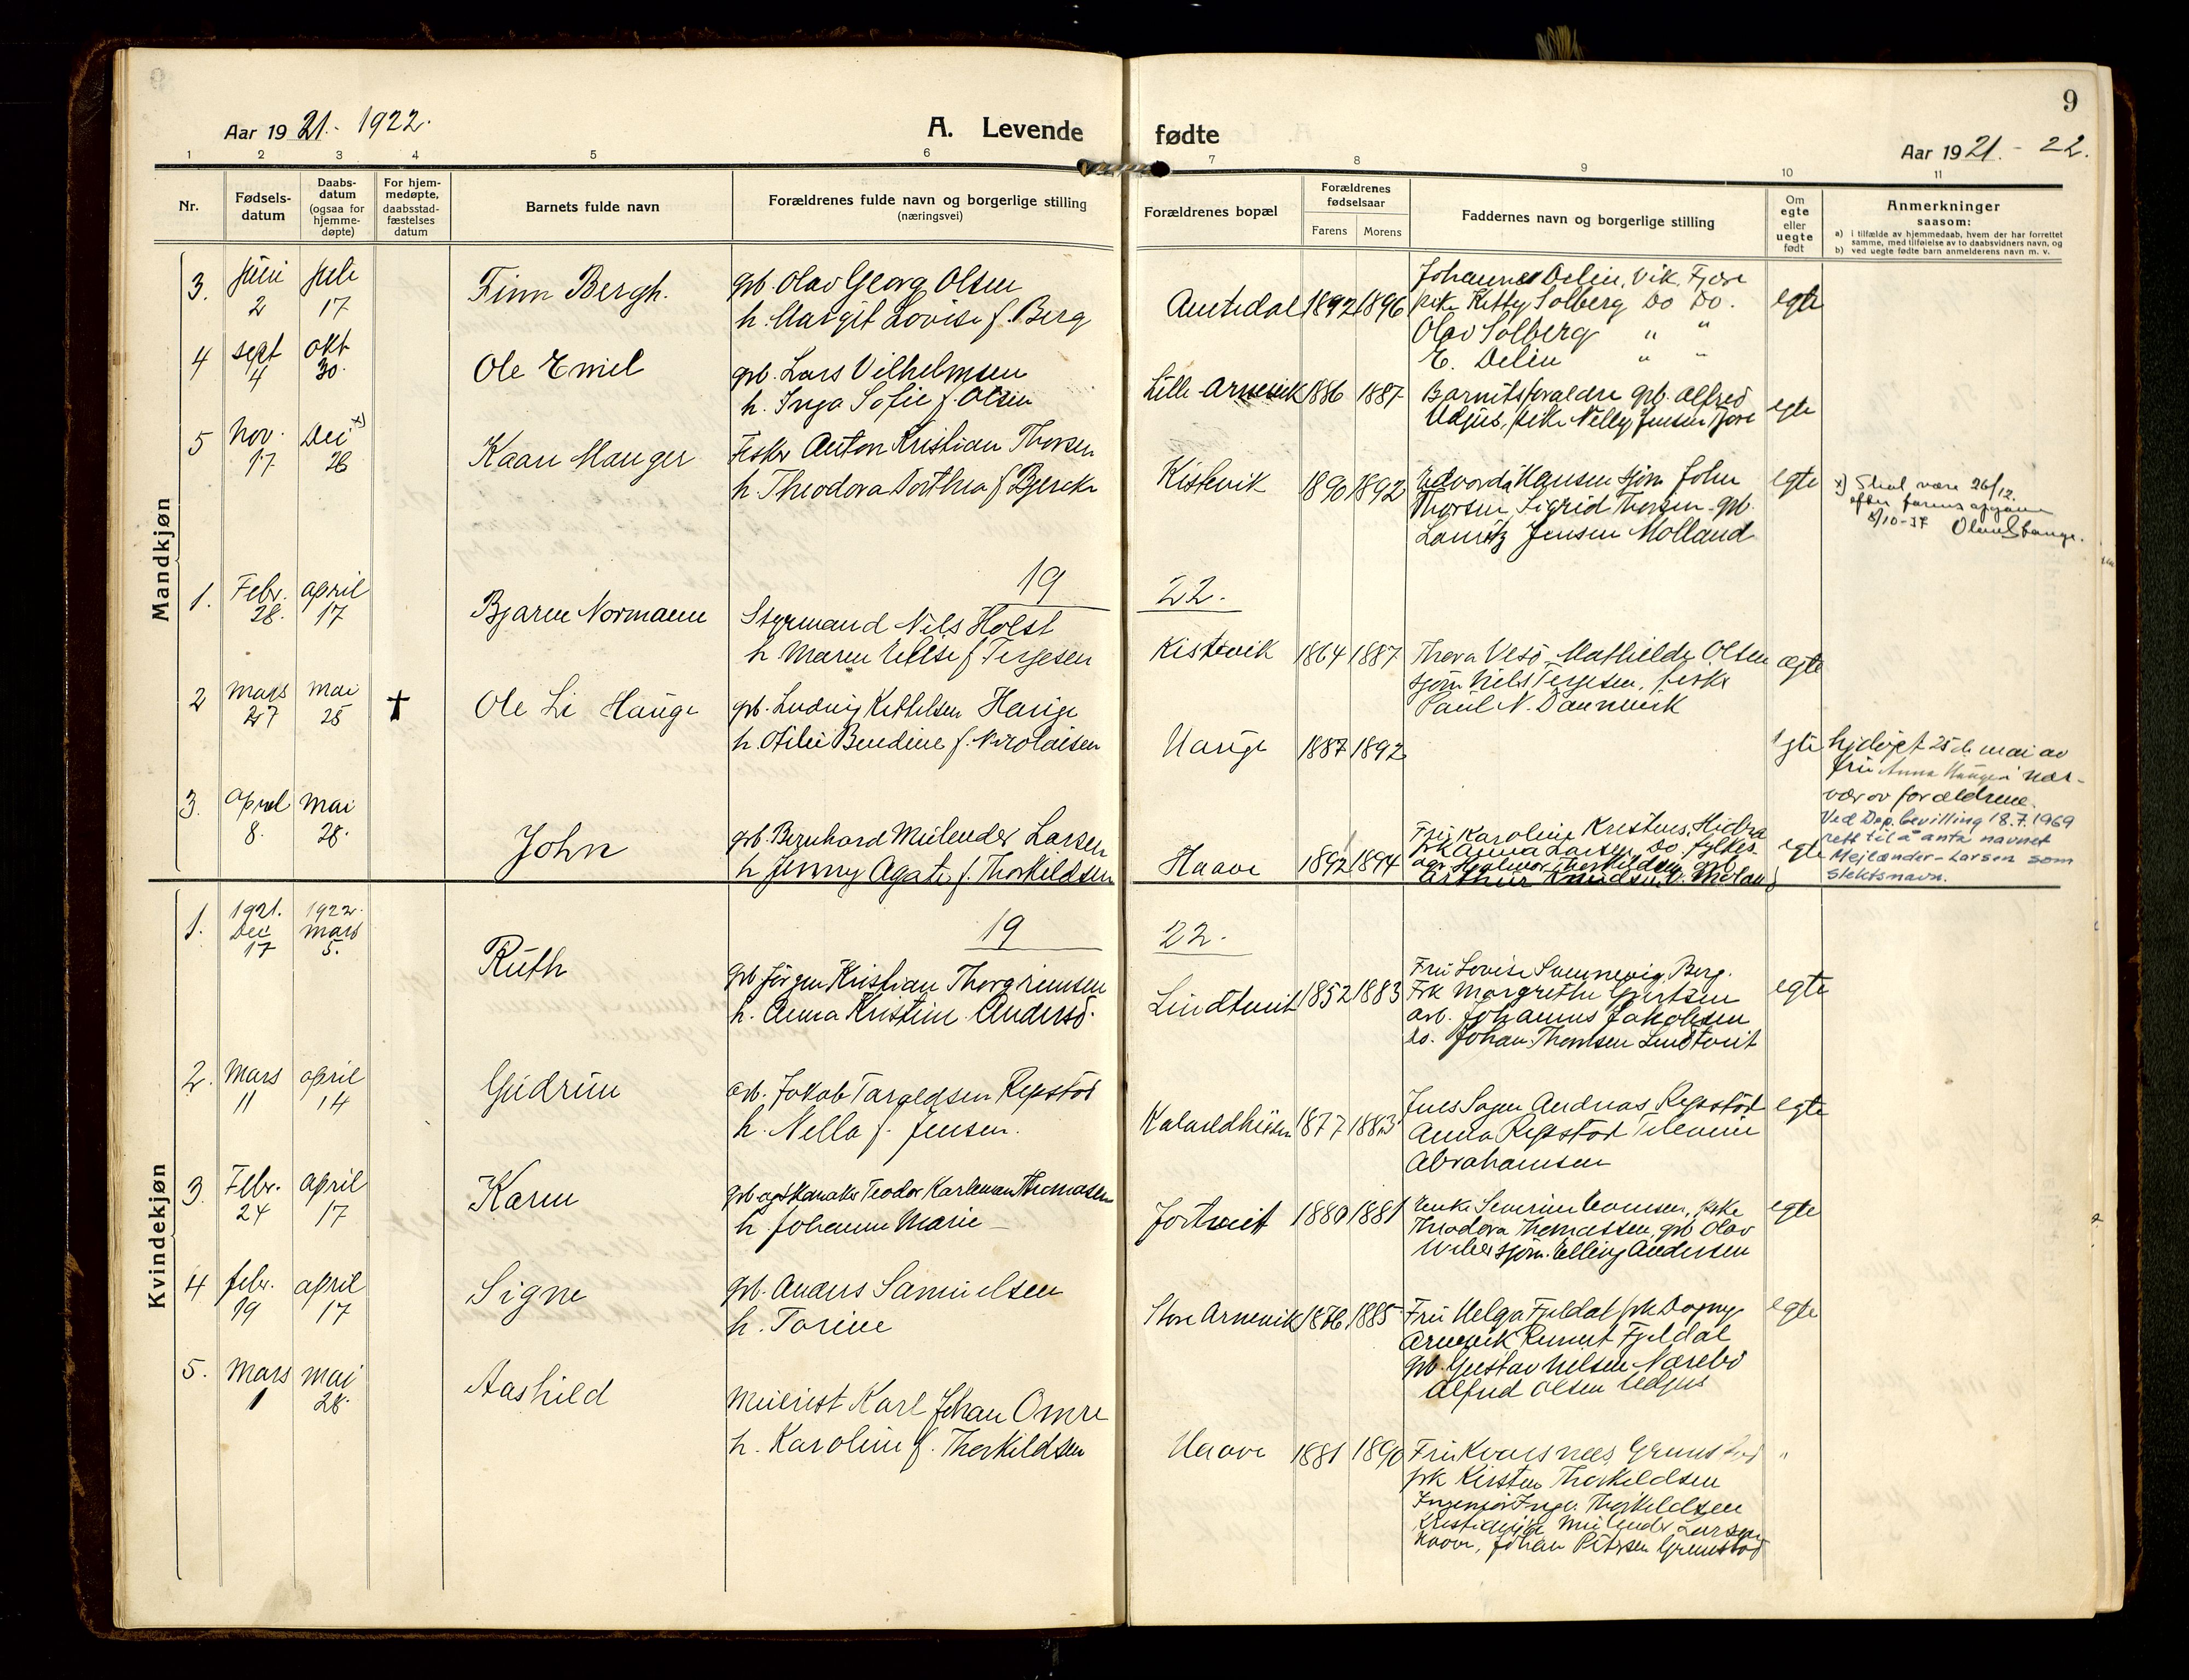 9
Aar 19 21.- 1922.
A. Levende fødte
Aar 19 21. - 22.
1 2 3 4 5 6 7 8 9 10 11
Nr.
Fødsels-
datum
Daabs-
datum
(ogsaa for
hjemme-
døpte)
For hjem-
medøpte,
daabsstad-
fæstelses
datum
Barnets fulde navn
Forældrenes fulde navn og borgerlige stilling
(næringsvei)
Forældrenes bopæl
Forældrenes
fødselsaar
Farens Morens
Faddernes navn og borgerlige stilling
Om
egte
eller
uegte
født
Anmerkninger
saasom:
a) i tilfælde av hjemmedaab, hvem der har forrettet
samme, med tilføielse av to daabsvidners navn, og
b) ved uegte fødte barn anmelderens navn m. v.
Mandkjøn
3. juni 2 juli 17
Finn Bergh.
grb. Olav Georg Olsen
h. Margit Lovise f. Berg
1892 1896
Johannes Delin, Vik, Fjære
pike Kitty Solberg Do Do.
Olav Solberg " "
E. Delin " "
egte
4 sept 4 okt 30.
Ole Emil
grb. Lars Vilhelmsen
h. Inga Sofie f. Olsen
Lille Arnevik 1886 1887
Barnetsforældre grb. Alfred
Udjus, pike Nelly Jensen Fjære
egte
5 Nov. 17 Dec x) 26
Kaare Manger
Fisker Anton Kristian Thorsen
h. Theodora Dorthea f Bjercke
Kistevik 1890 1892
Hansen sjøm John
Thorsen, Sigrid Thorsen grb.
Lauritz Jensen Molland
egte
x) Skal være 26/12.
efter farens opgave
8/10-37 Olav Stange.
19 22.
1. Febr. 28. april 17
Bjarne Normann
Styrmand Nils Holst
h. Maren Elise f Terjesen
Kistevik 1864 1887
Thora Vesö, Mathilde Olsen
sjøm Nils Terjesen, fisker
Paul N. Dannevik
egte
2 mars 27 mai 25 †
Ole Li Hauge
grb. Ludvig Kittelsen Hauge
h. Otilie Bendine f. Nicolaisen
Hauge 1887 1892
egte
hjdøpt 25de mai av
fru Anna Hauge i nær-
vær av forældrene.
3. april 8. mai 28.
John
grb. Bernhard Meilender Larsen
h Jenny Agate f. Thorkildsen
Haave 1892 1894
Fru Karoline Kristens, Hidra
frk Anna Larsen, Do, fylkes-
agr. Hjalmar Thorkildsen, grb.
Arthur Knudsen,
egte
Ved Dep. bevilling 18.7.1969
rett til å anta navnet
Mejlænder-Larsen som
slektsnavn.
Kvindekjøn
19 22.
1. 1921. Dec 17 1922. mars 5.
Ruth
grb. Jørgen Kristian Thorgrimsen
h. Anna Kristine Andersd.
Lindtveit 1852 1883
Fru Lovise Sømnevig, Berg.
Frk Margrethe Gjertsen
arb. Johannes Jakobsen
do. Johan Thomsen Lindtveit
egte
2. Mars 11 april 14
Gudrun
arb. Jakob Taraldsen Repstad
h. Nella f. Jensen.
1877 1883
Andreas Repstad
Anna Repstad
Abrahamsen
egte
3 Febr. 24 april 17
Karen
grb og Skomaker Teodor Karleman Thomasen
h. Johanne Marie —
Jortveit 1880 1881
Enke Severine Thomsen, pike
Theodora Thomassen, grb Olav
sjøm. Elling Andersen
egte
4 febr. 19 april 17
Signe
grb. Anders Samuelsen
h. Torine
Store Arnevik 1876 1885
Fru Helga Fjeldal frk Dagny
Arnevik Fjeldal
grb. Gustav Nilsen Nærebö
Alfred Olsen Udjus
egte
5. Mars 1 mai 28.
Aashild
Meierist Karl Johan Omre
h. Karoline f. Thorkildsen
Haave 1881 1890
Fru Kvarsnes Grimstad
frk Kirsten Thorkildsen
Ingeniør Ingv. Thorkildsen
Kristiania Meilender Larsen
Haave, Johan Petersen Grimstad
"